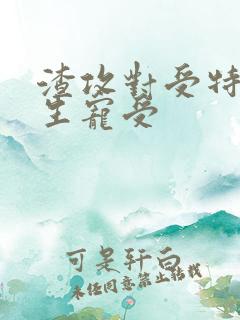 渣攻對受特
生寵受
可是轩白
未经同意禁止转载